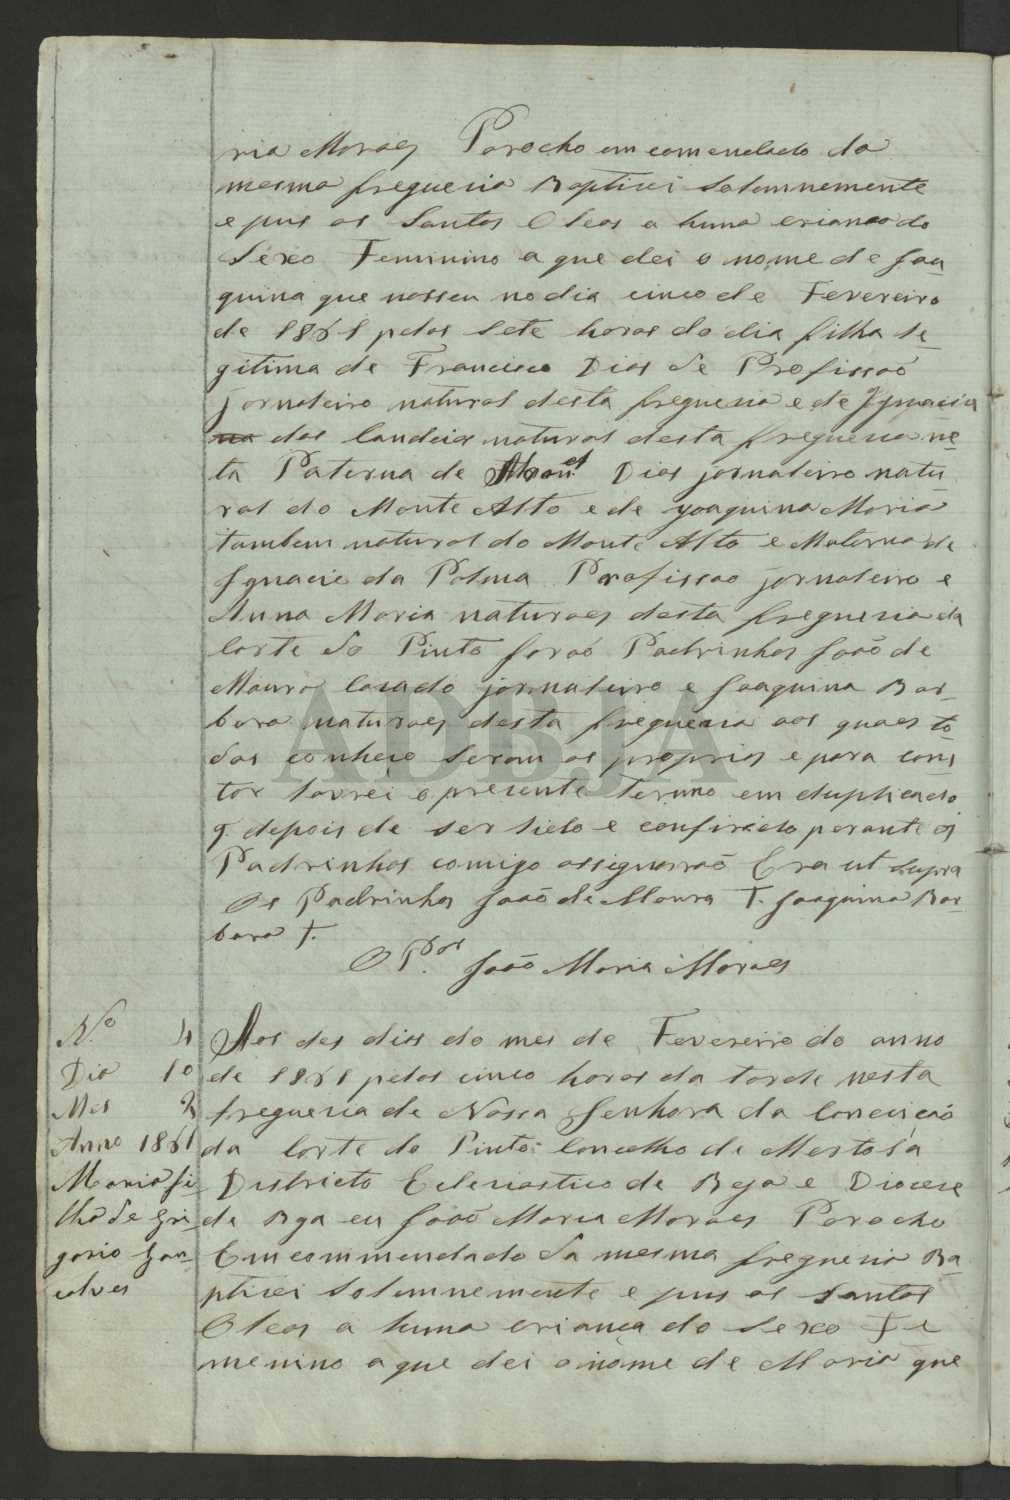 ria Moraes Parocho emcomendado da
mesma freguezia Baptizei Solemnemente
e pus os Santos Oleos a huma criança do
Sexo Feminino a que dei o nome de Joa=
quina que nasseu no dia cinco de Fevereiro
de 1861 pelas sete horas do dia filha le=
gitima de Francisco Dias de Profissaõ
jornaleiro natural desta freguezia e de Ignacia
das Candeias natural desta freguezia ne=
ta Paterna de Manoel Dias jornaleiro natu=
ral do Monte Alto e de Joaquina Maria
tambem natural do Monte Alto e Materna de
Ignacio da Palma Profissao jornaleiro e
Anna Maria naturaes desta freguezia da
Corte do Pinto foraõ Padrinhos Joaõ de
Moura Cazado jornaleiro e Joaquina Bar=
bora naturaes desta freguezia aos quaes to=
dos conheco serem os proprios e para cons=
tar lavrei o prezente termo em duplicado
q. depois de ser lido e confirido perante os
Padrinhos comigo assignaraõ Era ut supra
Os Padrinhos Joaõ de Moura T. Joaquina Bar=
bora T.
O P.or Joaõ Maria Moraes
N.o 4
Dia 10
Mes 2
Anno 1861
Maria fi=
lha de Gri=
gorio Gon=
calves
Aos des dias do mes de Fevereiro do anno
de 1861 pelas cinco horas da tarde nesta
freguezia de Nossa Senhora da Conceicaõ
da Corte do Pinto Concelho de Mertola
Districto Ecleziastico de Beja e Diocese
de Bja eu Joaõ Maria Moraes Parocho
Emcommendado da mesma freguezia Ba=
ptizei Solemnemente e pus os Santos
Oleos a huma criança do Sexo Fe
menino a que dei o nome de Maria que
ADBJA